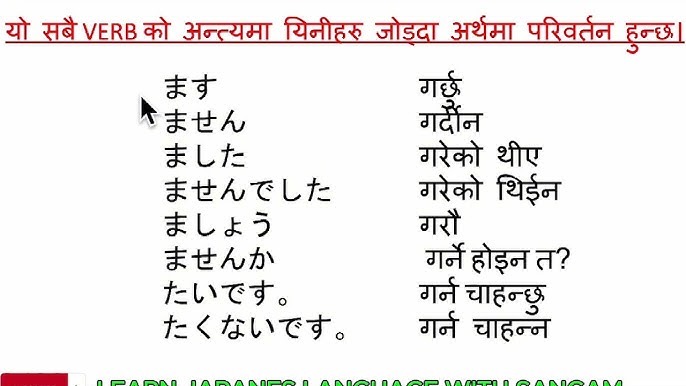 यो सबै VERB को अन्त्यमा यिनीहरु जोड्दा अर्थमा परिवर्तन हुन्छ।
ます गर्छु
ません गर्दैान
ました गरेको थीए
ませんでした गरेको थिईन
ましょう गरौ
ませんか गर्ने होइन त?
たいです。 गर्न चाहन्छु
たくないです。 गर्न चाहन्न
LEARN JAPANES LANGUAGE WITH SANGAM